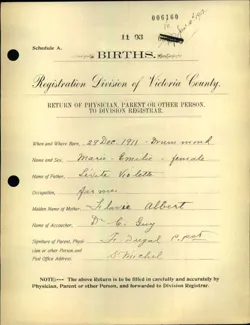 006160
11 93
Schedule A.
BIRTHS.
Registration Division of Victoria County.
RETURN OF PHYSICIAN, PARENT OR OTHER PERSON,
TO DIVISION REGISTRAR.
When and Where Born, 29 Dec 1911 - Drummond
Name and Sex, Marie Emilie - female
Name of Father, Violette
Occupation, farmer
Maiden Name of Mother, Albert
Name of Accoucheur, Dr C. Guy
Signature of Parent, Physi-
cian or other Person and
Post Office Address,
St Michel
NOTE:—The above Return is to be filled in carefully and accurately by
Physician, Parent or other Person, and forwarded to Division Registrar.